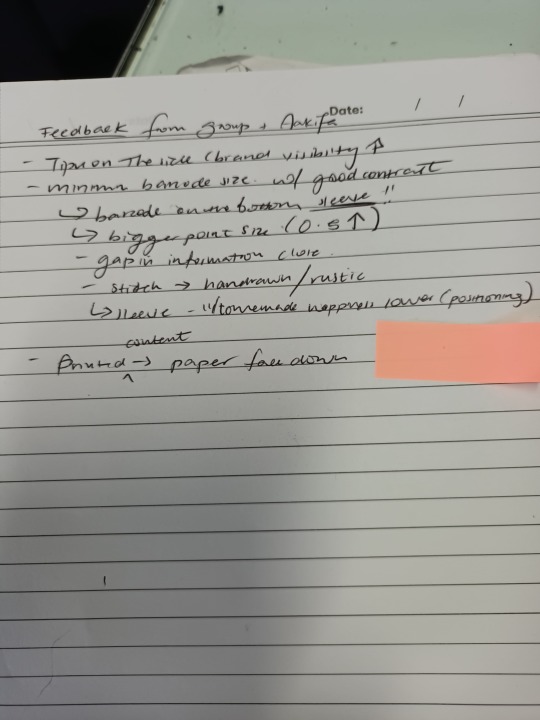 Date: / /
Feedback from group + Aakifa
- on the side (brand visibility ↑
- minimum barcode size w/ good contrast
↳ barcode on the bottom sleeve !!
↳ bigger point size (0.5 ↑)
- gap in information close
- stitch → handrawn/rustic
↳ sleeve - "Homemade happness lower (positioning)
content
- Printed → paper face down
^